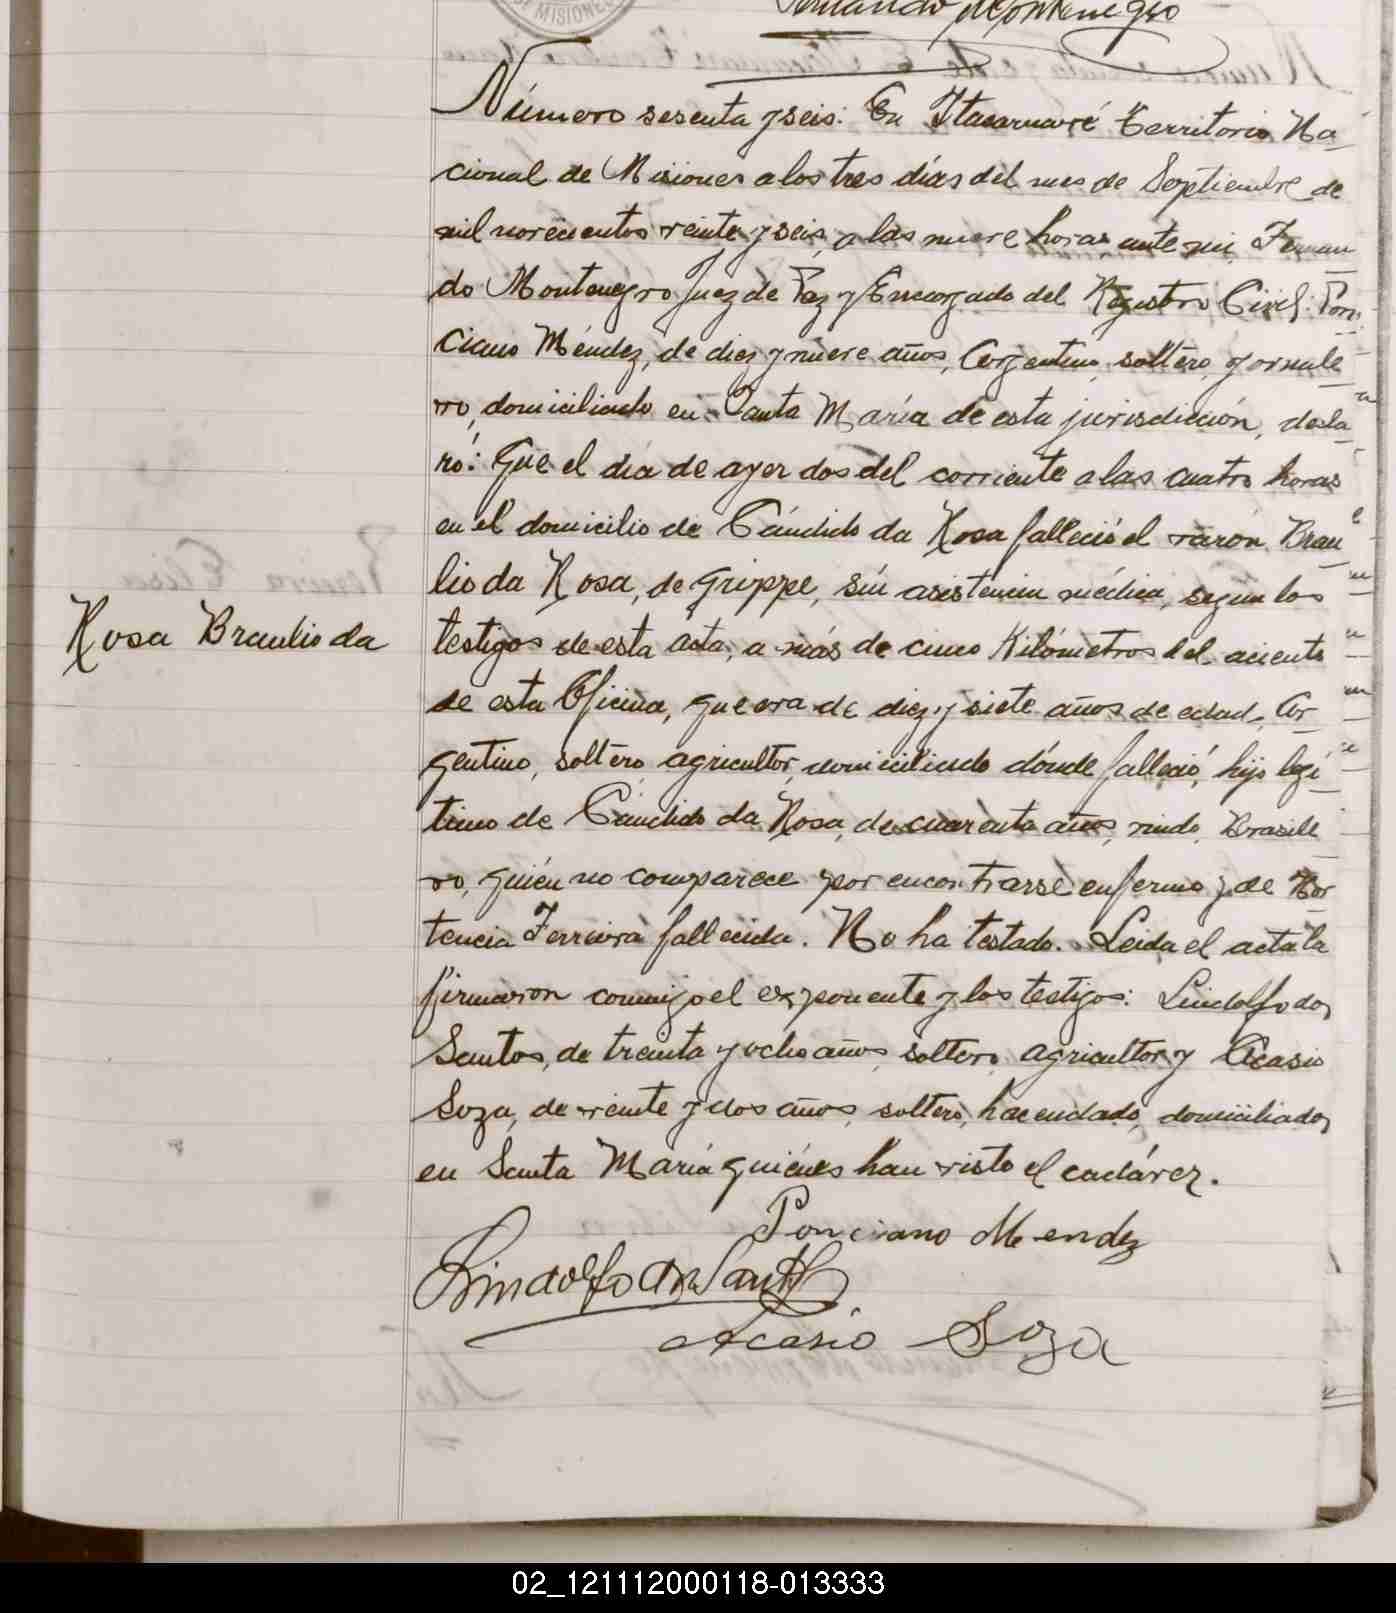 DE MISIONES
Fernando Montenegro
Número sesenta y seis: En Itacaruaré Territorio Na-
cional de Misiones a los tres días del mes de Septiembre de
mil novecientos veinte y seis, a las nueve horas ante mi, Fernan-
do Montenegro Juez de Paz y Encargado del Registro Civil: Pon-
ciano Méndez, de diez y nueve años, Argentino, soltero, jornale-
ro, domiciliado en Santa María de esta jurisdicción, decla-
ró: Que el día de ayer dos del corriente a las cuatro horas
en el domicilio de Cándido da Rosa falleció el varón Brau-
lio da Rosa, de grippe, sin asistencia médica, según los
Rosa Braulio da
testigos de esta acta, a más de cinco Kilómetros del aciento
de esta Oficina, que era de diez y siete años de edad, Ar-
gentino, soltero, agricultor, domiciliado dónde falleció, hijo legí-
timo de Cándido da Rosa, de cuarenta años, viudo, Brasile-
ro, quién no comparece por encontrarse enfermo y de Hor-
tencia Ferreira fallecida. No ha testado. Leida el acta la
firmaron conmigo el exponente y los testigos: Lindolfo dos
Santos, de treinta y ocho años, soltero, agricultor y Acasio
Soza, de veinte y dos años, soltero, hacendado, domiciliados
en Santa María quiénes han visto el cadáver.
Ponciano Mendez
Lindolfo dos Santos
Acasio Soza
02_121112000118-013333